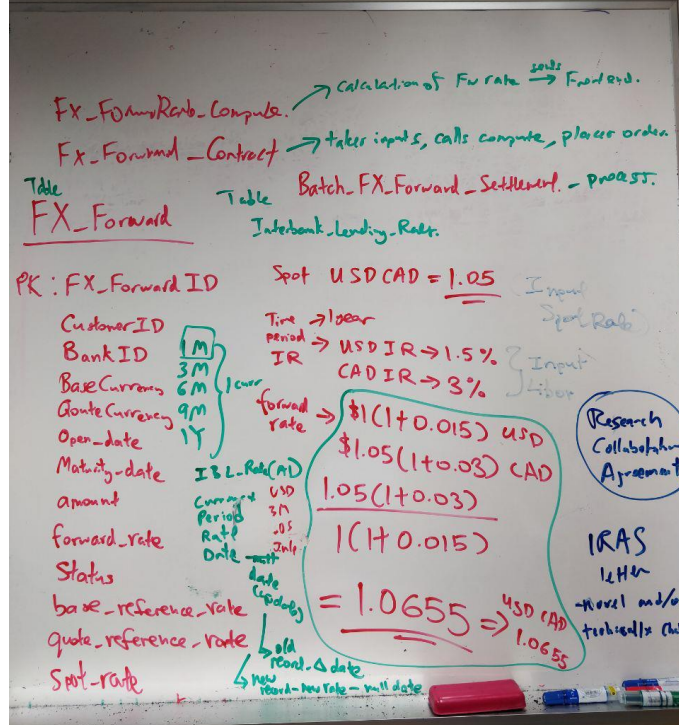 calculation of Fw rate → sends Frontend.
Compute.
FX_Forward_Contract → takes inputs, calls compute, places order
Table
FX_Forward
Batch_FX_Forward_Settlement. - process.
Table
Interbank_Lending_Rates.
PK : FX_Forward ID
CustomerID
BankID
BaseCurrency
QouteCurrency
Open_date
Maturity_date
amount
forward_rate
Status
base_reference_rate
quote_reference_rate
Spot_rate
1M
3M
6M
9M
1Y
1 curr
Spot USDCAD = 1.05
Input
Spot Rate
Time period → 1 year
IR → USD IR → 1.5%
CAD IR → 3%
Input
Libor
forward rate → $1(1+0.015) USD
$1.05(1+0.03) CAD
1.05(1+0.03)
1(1+0.015)
= 1.0655 ⇒ USD CAD
1.0655
Currency USD
Period 3M
Rate .05
Date
date
old
record_Δ date
new
record-new rate - null date
Research
Collaboration
Agreement
IRAS
letter
-Novel and/o